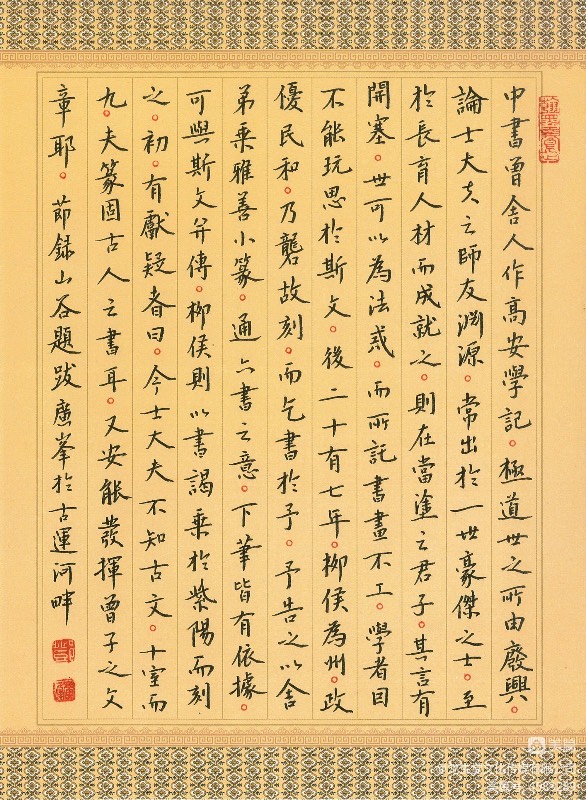 中書曾舍人作高安學記。極道世之所由廢興。
論士大夫之師友淵源。常出於一世豪傑之士。至
於長育人材而成就之。則在當塗之君子。其言有
開塞。世可以為法戒。而所託書畫不工。學者目
不能玩思於斯文。後二十有七年。柳侯為州。政
優民和。乃礱故刻。而乞書於予。予告之以舍
弟乘雅善小篆。通六書之意。下筆皆有依據。
可與斯文并傳。柳侯則以書謁乘於紫陽而刻
之。初。有獻疑者曰。今士大夫不知古文。十室而
九。夫篆固古人之書耳。又安能發揮曾子之文
章耶。節録山谷題跋廣峯於古運河畔